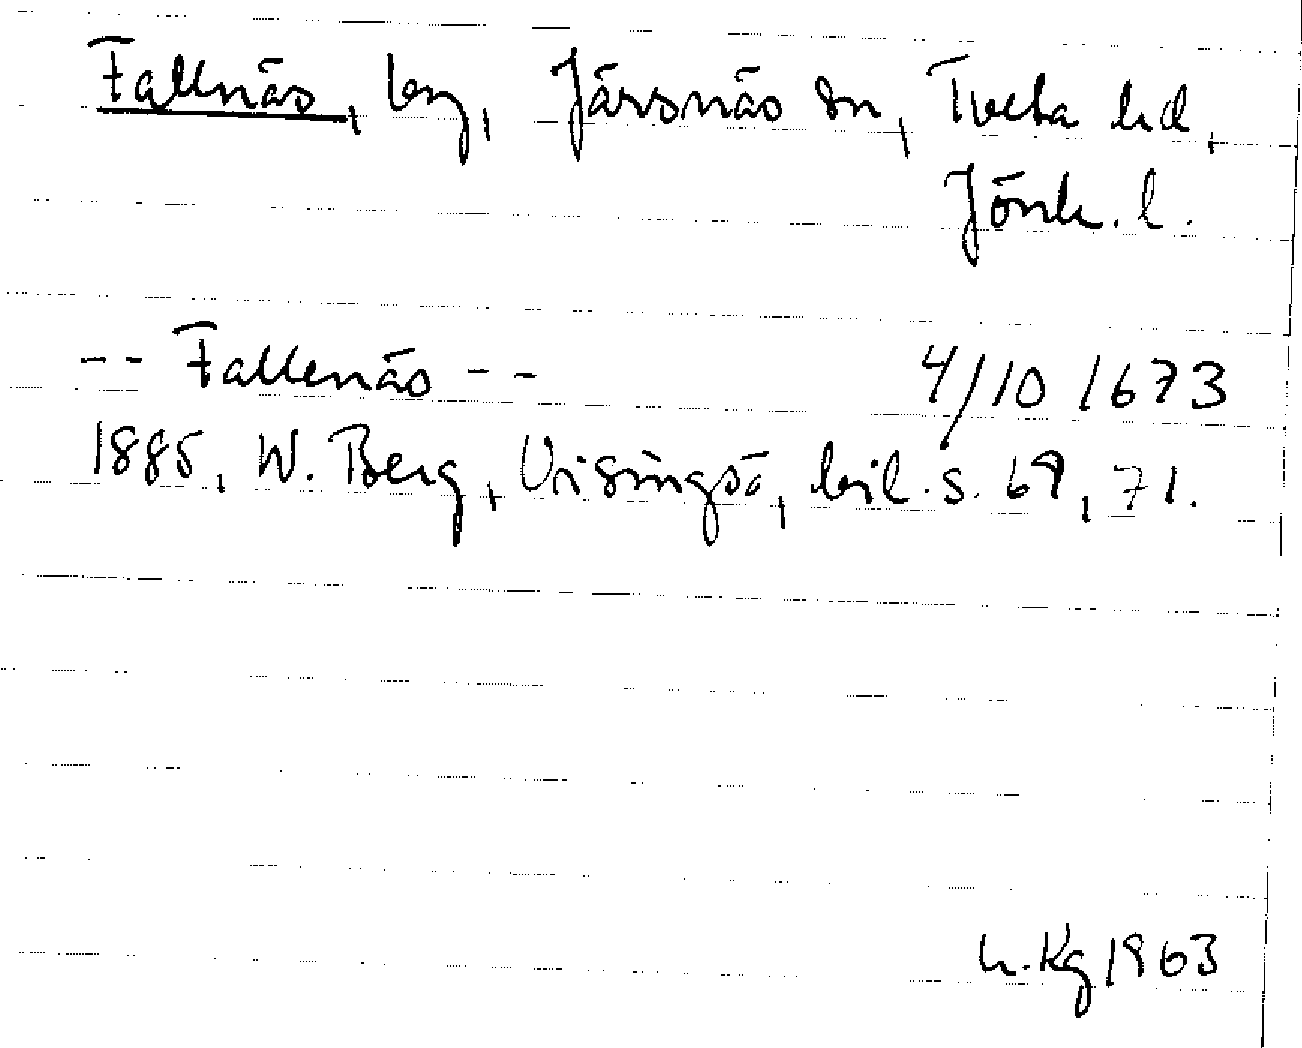 Fallnäs, by, Järsnäs sn, Tveta hd,
Jönk. l.
-- Fallenäs -- 4/10 1673
1885, W. Berg, Visingsö, bil. s. 69, 71.
h. Kg 1963